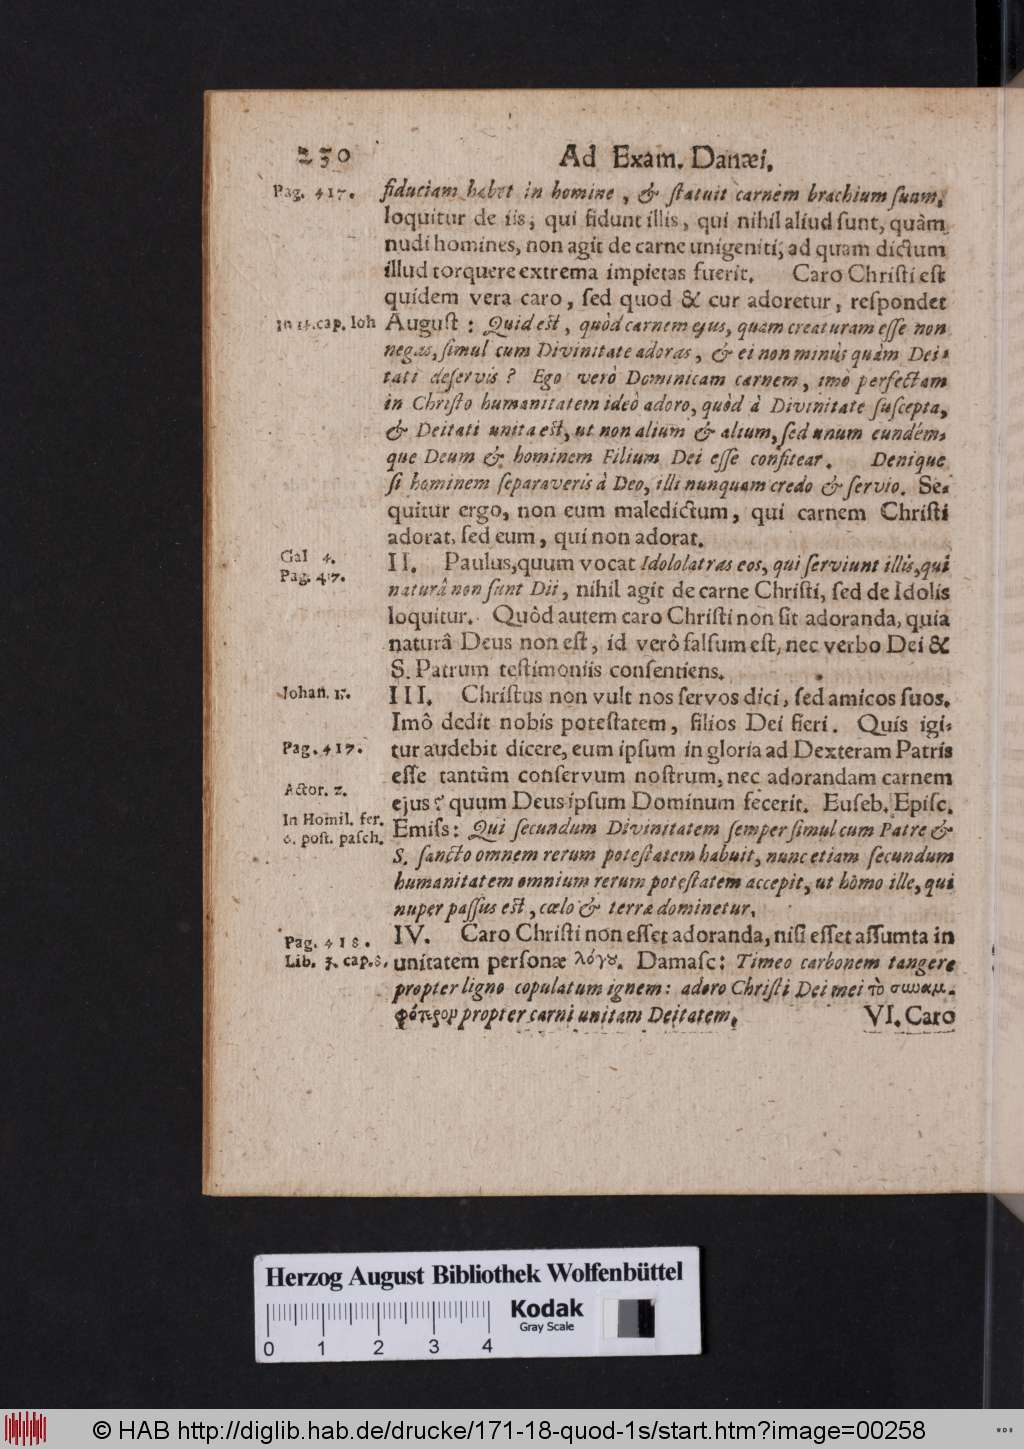 250 Ad Exam. Danæi.
Pag. 417. fiduciam habet in homine, & ſtatuit carnem brachium ſuum,
loquitur de iis, qui fidunt illis, qui nihil aliud ſunt, quàm
nudi homines, non agit de carne unigeniti, ad quam dictum
illud torquere extrema impietas fuerit. Caro Chriſti eſt
quidem vera caro, ſed quod & cur adoretur, reſpondet
In 14. cap. Ioh Auguſt: Quid eſt, quòd carnem ejus, quam creaturam eſſe non
negas, ſimul cum Divinitate adoras, & ei non minùs quàm Dei-
tati deſervis? Ego verò Dominicam carnem, imò perfectam
in Chriſto humanitatem ideò adoro, quòd à Divinitate ſuſcepta,
& Deitati unita eſt, ut non alium & alium, ſed unum eundém-
que Deum & hominem Filium Dei eſſe confitear. Denique
ſi hominem ſeparaveris à Deo, illi nunquam credo & ſervio. Se-
quitur ergo, non eum maledictum, qui carnem Chriſti
adorat, ſed eum, qui non adorat.
Gal 4. II. Paulus, quum vocat Idololatras eos, qui ſerviunt illis, qui
Pag. 417. naturâ non ſunt Dii, nihil agit de carne Chriſti, ſed de Idolis
loquitur. Quòd autem caro Chriſti non ſit adoranda, quia
naturâ Deus non eſt, id verò falſum eſt, nec verbo Dei &
S. Patrum teſtimoniis conſentiens.
Johan. 15. III. Chriſtus non vult nos ſervos dici, ſed amicos ſuos.
Imô dedit nobis poteſtatem, filios Dei fieri. Quis igi-
Pag. 417. tur audebit dicere, eum ipſum in gloria ad Dexteram Patris
eſſe tantùm conſervum noſtrum, nec adorandam carnem
Actor. 2. ejus? quum Deus ipſum Dominum fecerit. Euſeb. Epiſc.
In Homil. fer. Emiſs: Qui ſecundum Divinitatem ſemper ſimul cum Patre &
6. poſt. paſch. S. ſancto omnem rerum poteſtatem habuit, nunc etiam ſecundum
humanitatem omnium rerum poteſtatem accepit, ut hòmo ille, qui
nuper paſſus eſt, cœlo & terræ dominetur.
Pag. 418. IV. Caro Chriſti non eſſet adoranda, niſi eſſet aſſumta in
Lib. 3. cap. 8. unitatem perſonæ λόγου. Damaſc: Timeo carbonem tangere
propter ligno copulatum ignem: adoro Chriſti Dei mei τὸ συναμ-
φότερον propter carni unitam Deitatem.
VI. Caro
Herzog August Bibliothek Wolfenbüttel
Kodak
Gray Scale
0 1 2 3 4
© HAB http://diglib.hab.de/drucke/171-18-quod-1s/start.htm?image=00258